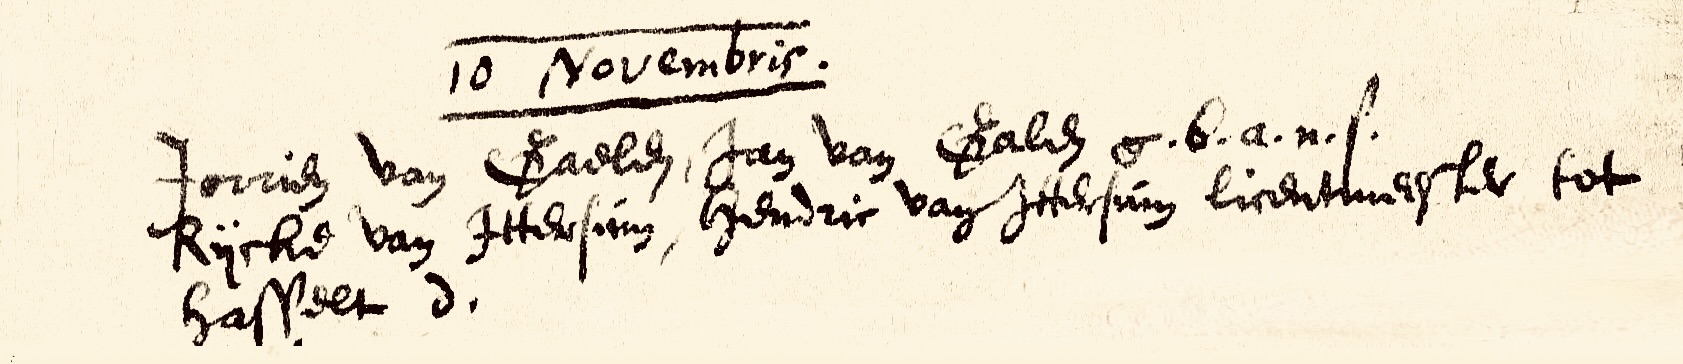 10 Novembris.
Jorrien van Raelen, Jan van Ralen g.b.a.n.s.
Rijcke van Ittersum, Hendric van Ittersum licentmeester tot
Hasselt d.